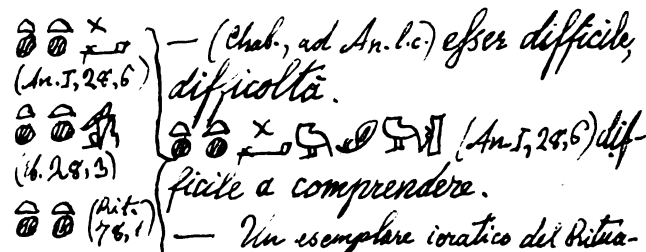 (An. I, 28, 6)
(Ib. 28, 3)
(Rit.
78, 1)
— (Chab., ad An. l.c.) esser difficile,
difficoltà.
(An. I, 28, 6) dif-
ficile a comprendere.
— Un esemplare ieratico del Ritua-